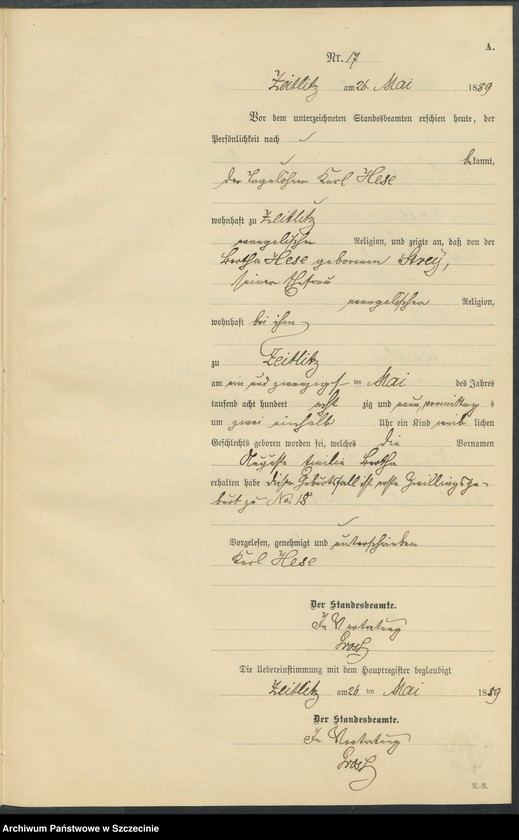 A.
Nr. 17
Zeitlitz am 26. Mai 1889
Vor dem unterzeichneten Standesbeamten erschien heute, der
Persönlichkeit nach
bekannt,
der Tagelöhner Karl Hese
wohnhaft zu Zeitlitz
evangelischer Religion, und zeigte an, daß von der
Bertha Hese geborenen Strey,
seiner Ehefrau
evangelischer Religion,
wohnhaft bei ihm
zu Zeitlitz
am ein und zwanzigsten Mai des Jahres
tausend acht hundert acht zig und neun vormittag s
um zwei einhalb Uhr ein Kind weib lichen
Geschlechts geboren worden sei, welches die Vornamen
Auguste Emilie Bertha
erhalten habe dieser Geburtsfall ist erste Zwillingsge-
burt zu No. 18
Vorgelesen, genehmigt und unterschrieben
Karl Hese
Der Standesbeamte.
In Vertretung
Die Uebereinstimmung mit dem Hauptregister beglaubigt
Zeitlitz am 26 ten Mai 1889
Der Standesbeamte.
In Vertretung
R.-R.
Archiwum Państwowe w Szczecinie